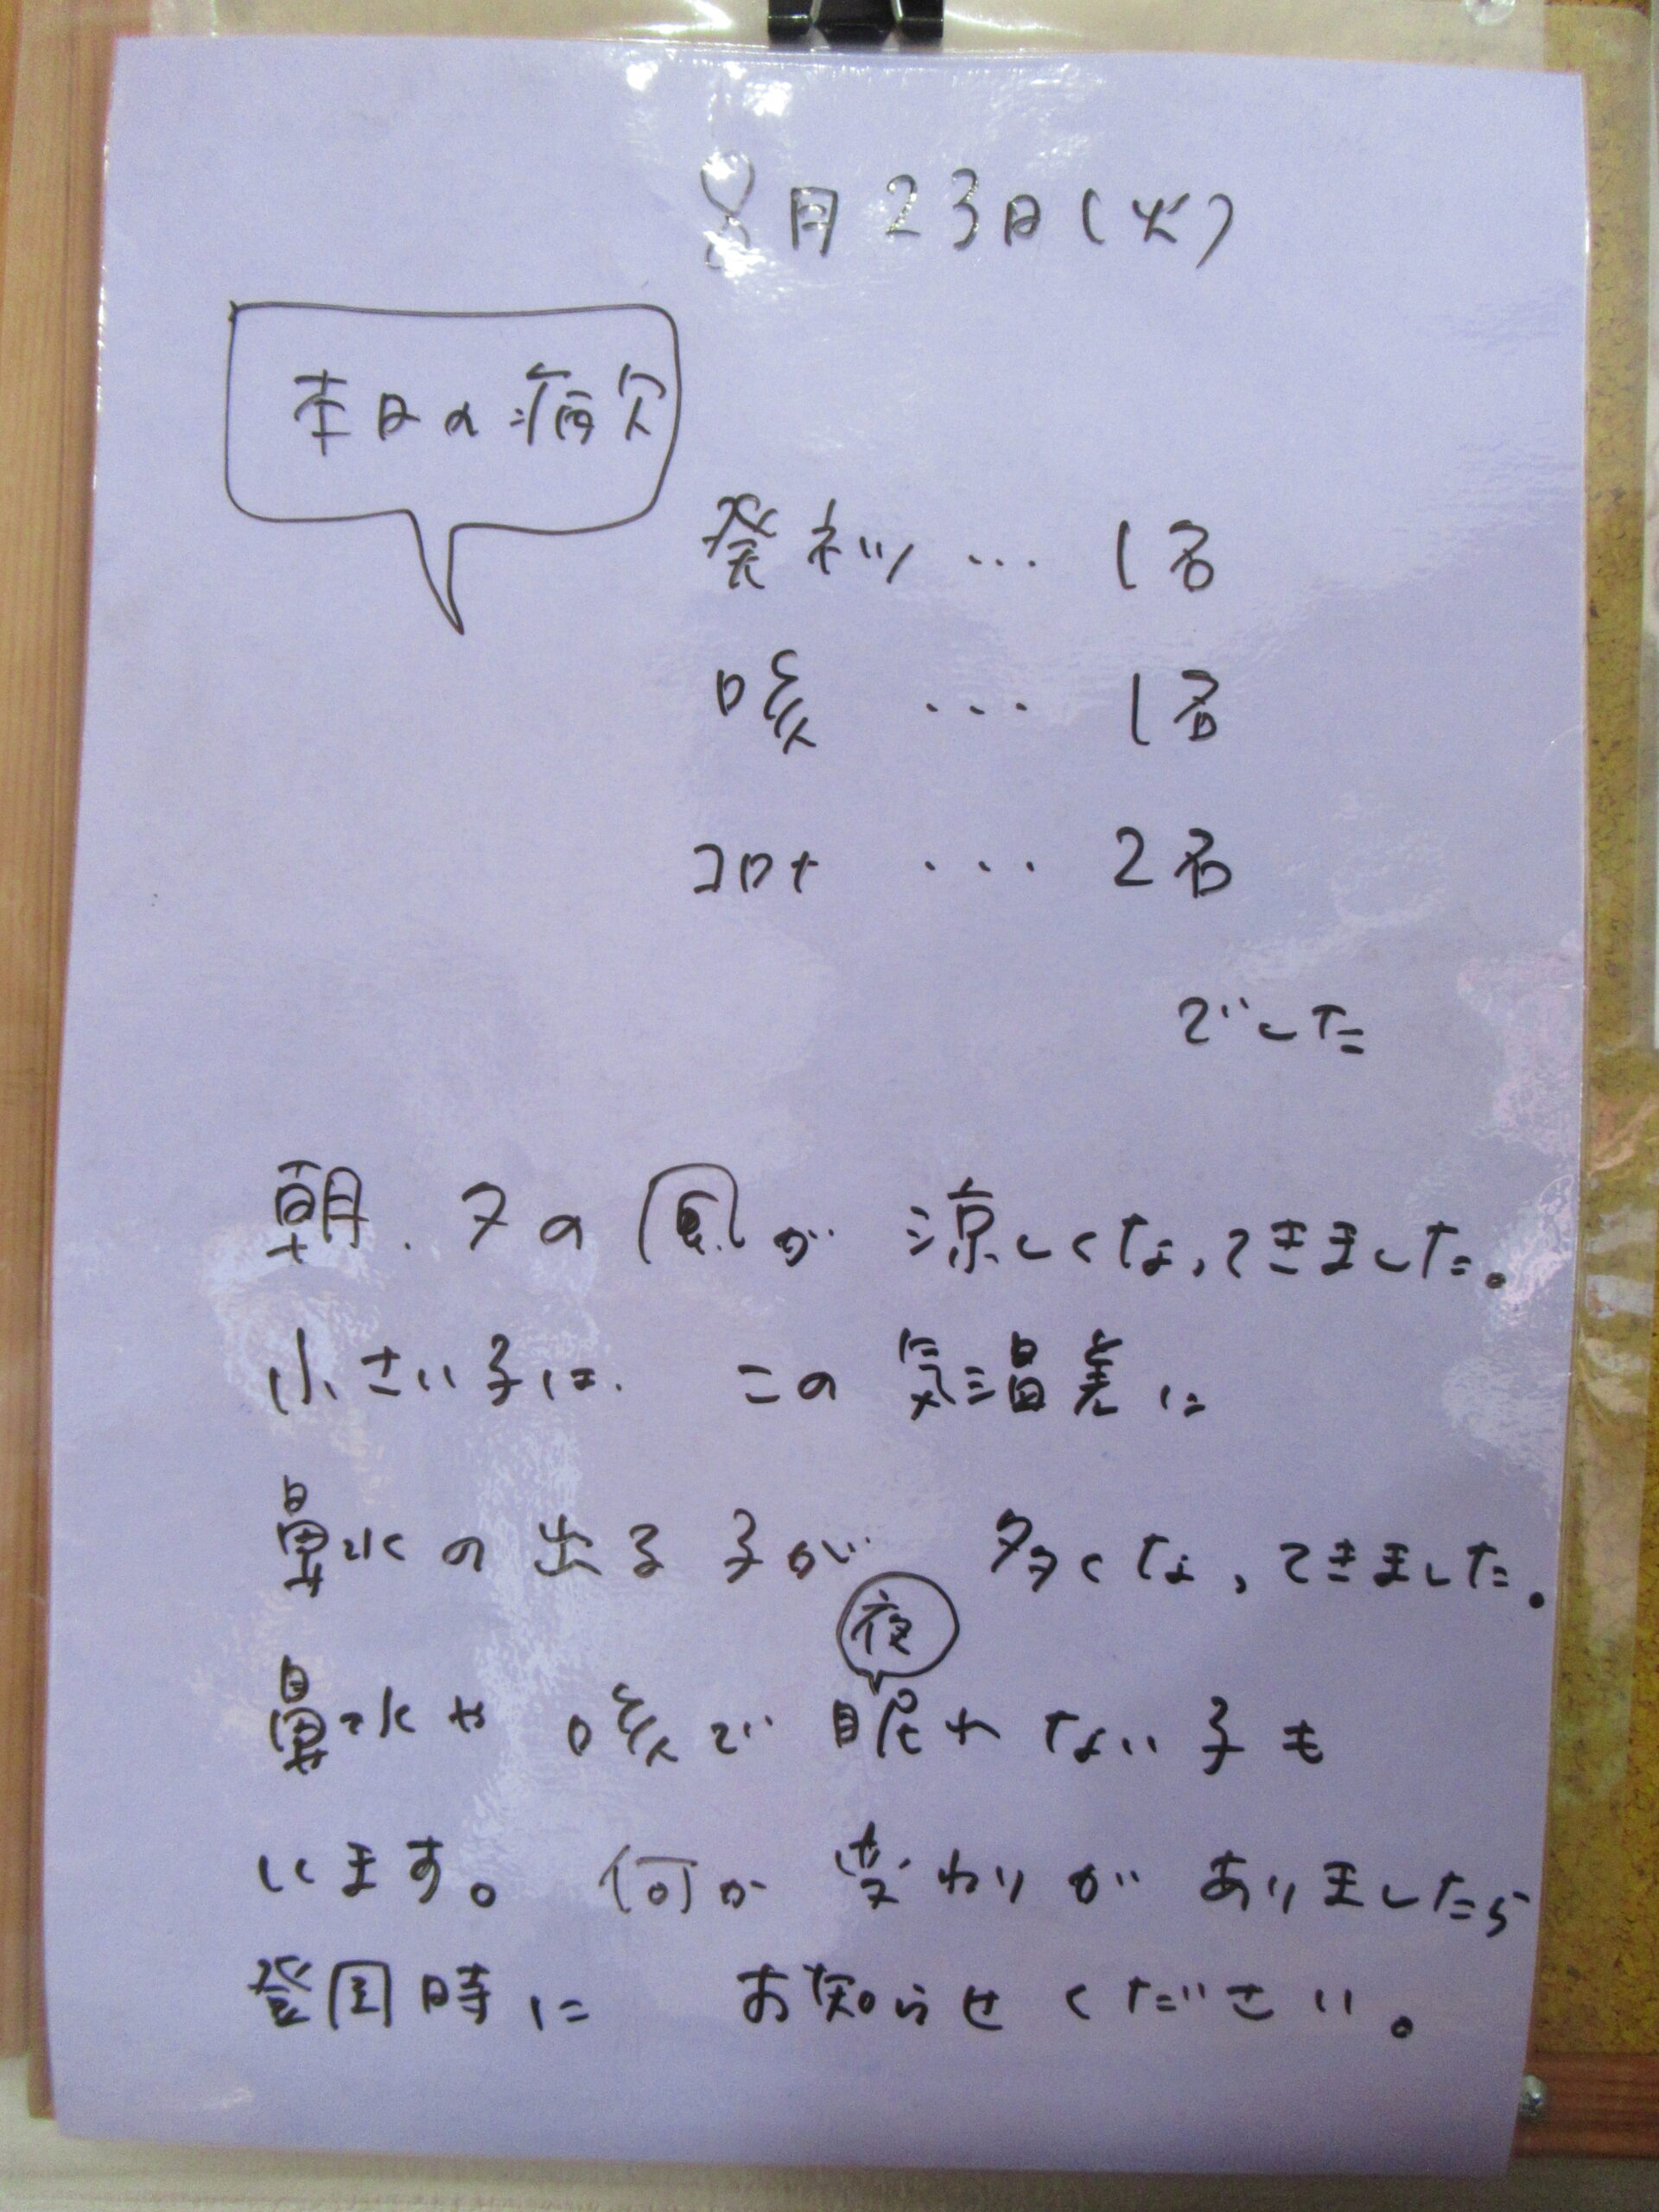 8月23日(火)
本日の病欠
発ネツ … 1名
咳 … 1名
コロナ … 2名
でした
朝.夕の風が 涼しくなってきました。
小さい子は. この気温差に
鼻水の出る子が 多くなってきました。
夜
鼻水や 咳で 眠れない子も
います。 何か 変わりが ありましたら
登園時に お知らせください。